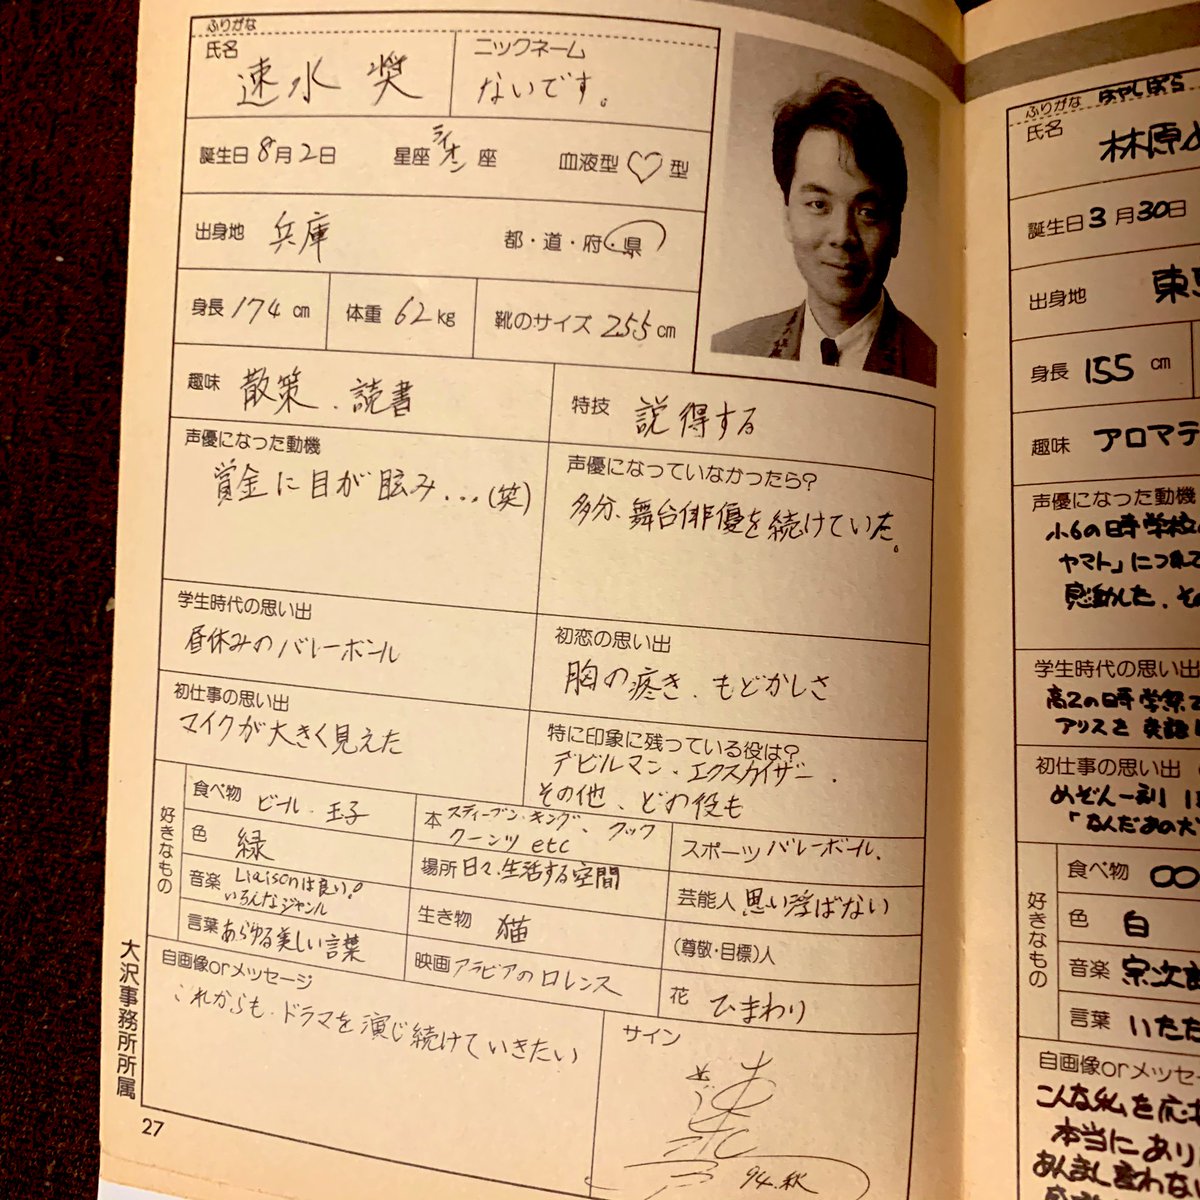 ふりがな
氏名 速水 奨
ニックネーム
ないです。
誕生日 8月2日 星座 ライオン 座 血液型 ♡ 型
出身地 兵庫 都・道・府・県
身長 174 cm 体重 62 kg 靴のサイズ 255 cm
趣味 散策、読書
特技 説得する
声優になった動機
賞金に目が眩み...(笑)
声優になっていなかったら?
多分、舞台俳優を続けていた。
学生時代の思い出
昼休みのバレーボール
初恋の思い出
胸の疼き、もどかしさ
初仕事の思い出
マイクが大きく見えた
特に印象に残っている役は?
デビルマン、エクスカイザー、
その他、どの役も
好きなもの
食べ物 ビール、玉子
本 スティーブン・キング、クック
クーンツ etc
スポーツ バレーボール、
色 緑
場所 日々、生活する空間
芸能人 思い浮ばない
音楽 Liaisonは良い!
いろんなジャンル
生き物 猫
(尊敬・目標)人
言葉 あらゆる美しい言葉
映画 アラビアのロレンス
花 ひまわり
自画像orメッセージ
これからも、ドラマを演じ続けていきたい
サイン
94.秋
大沢事務所所属
27
ふりがな はやしばら
氏名 林原
誕生日 3月30日
出身地 東
身長 155 cm
趣味 アロマテ
声優になった動機
小6の時学校
ヤマト」につ
感動した、その
学生時代の思い出
高2の時学祭で
アリスを 英語
初仕事の思い出
めぞん一刻
「なんだあの犬
好きなもの
食べ物
色 白
音楽 宗次郎
言葉 いただ
自画像orメッセー
こんな私を応
本当にあり
あんまし言わない